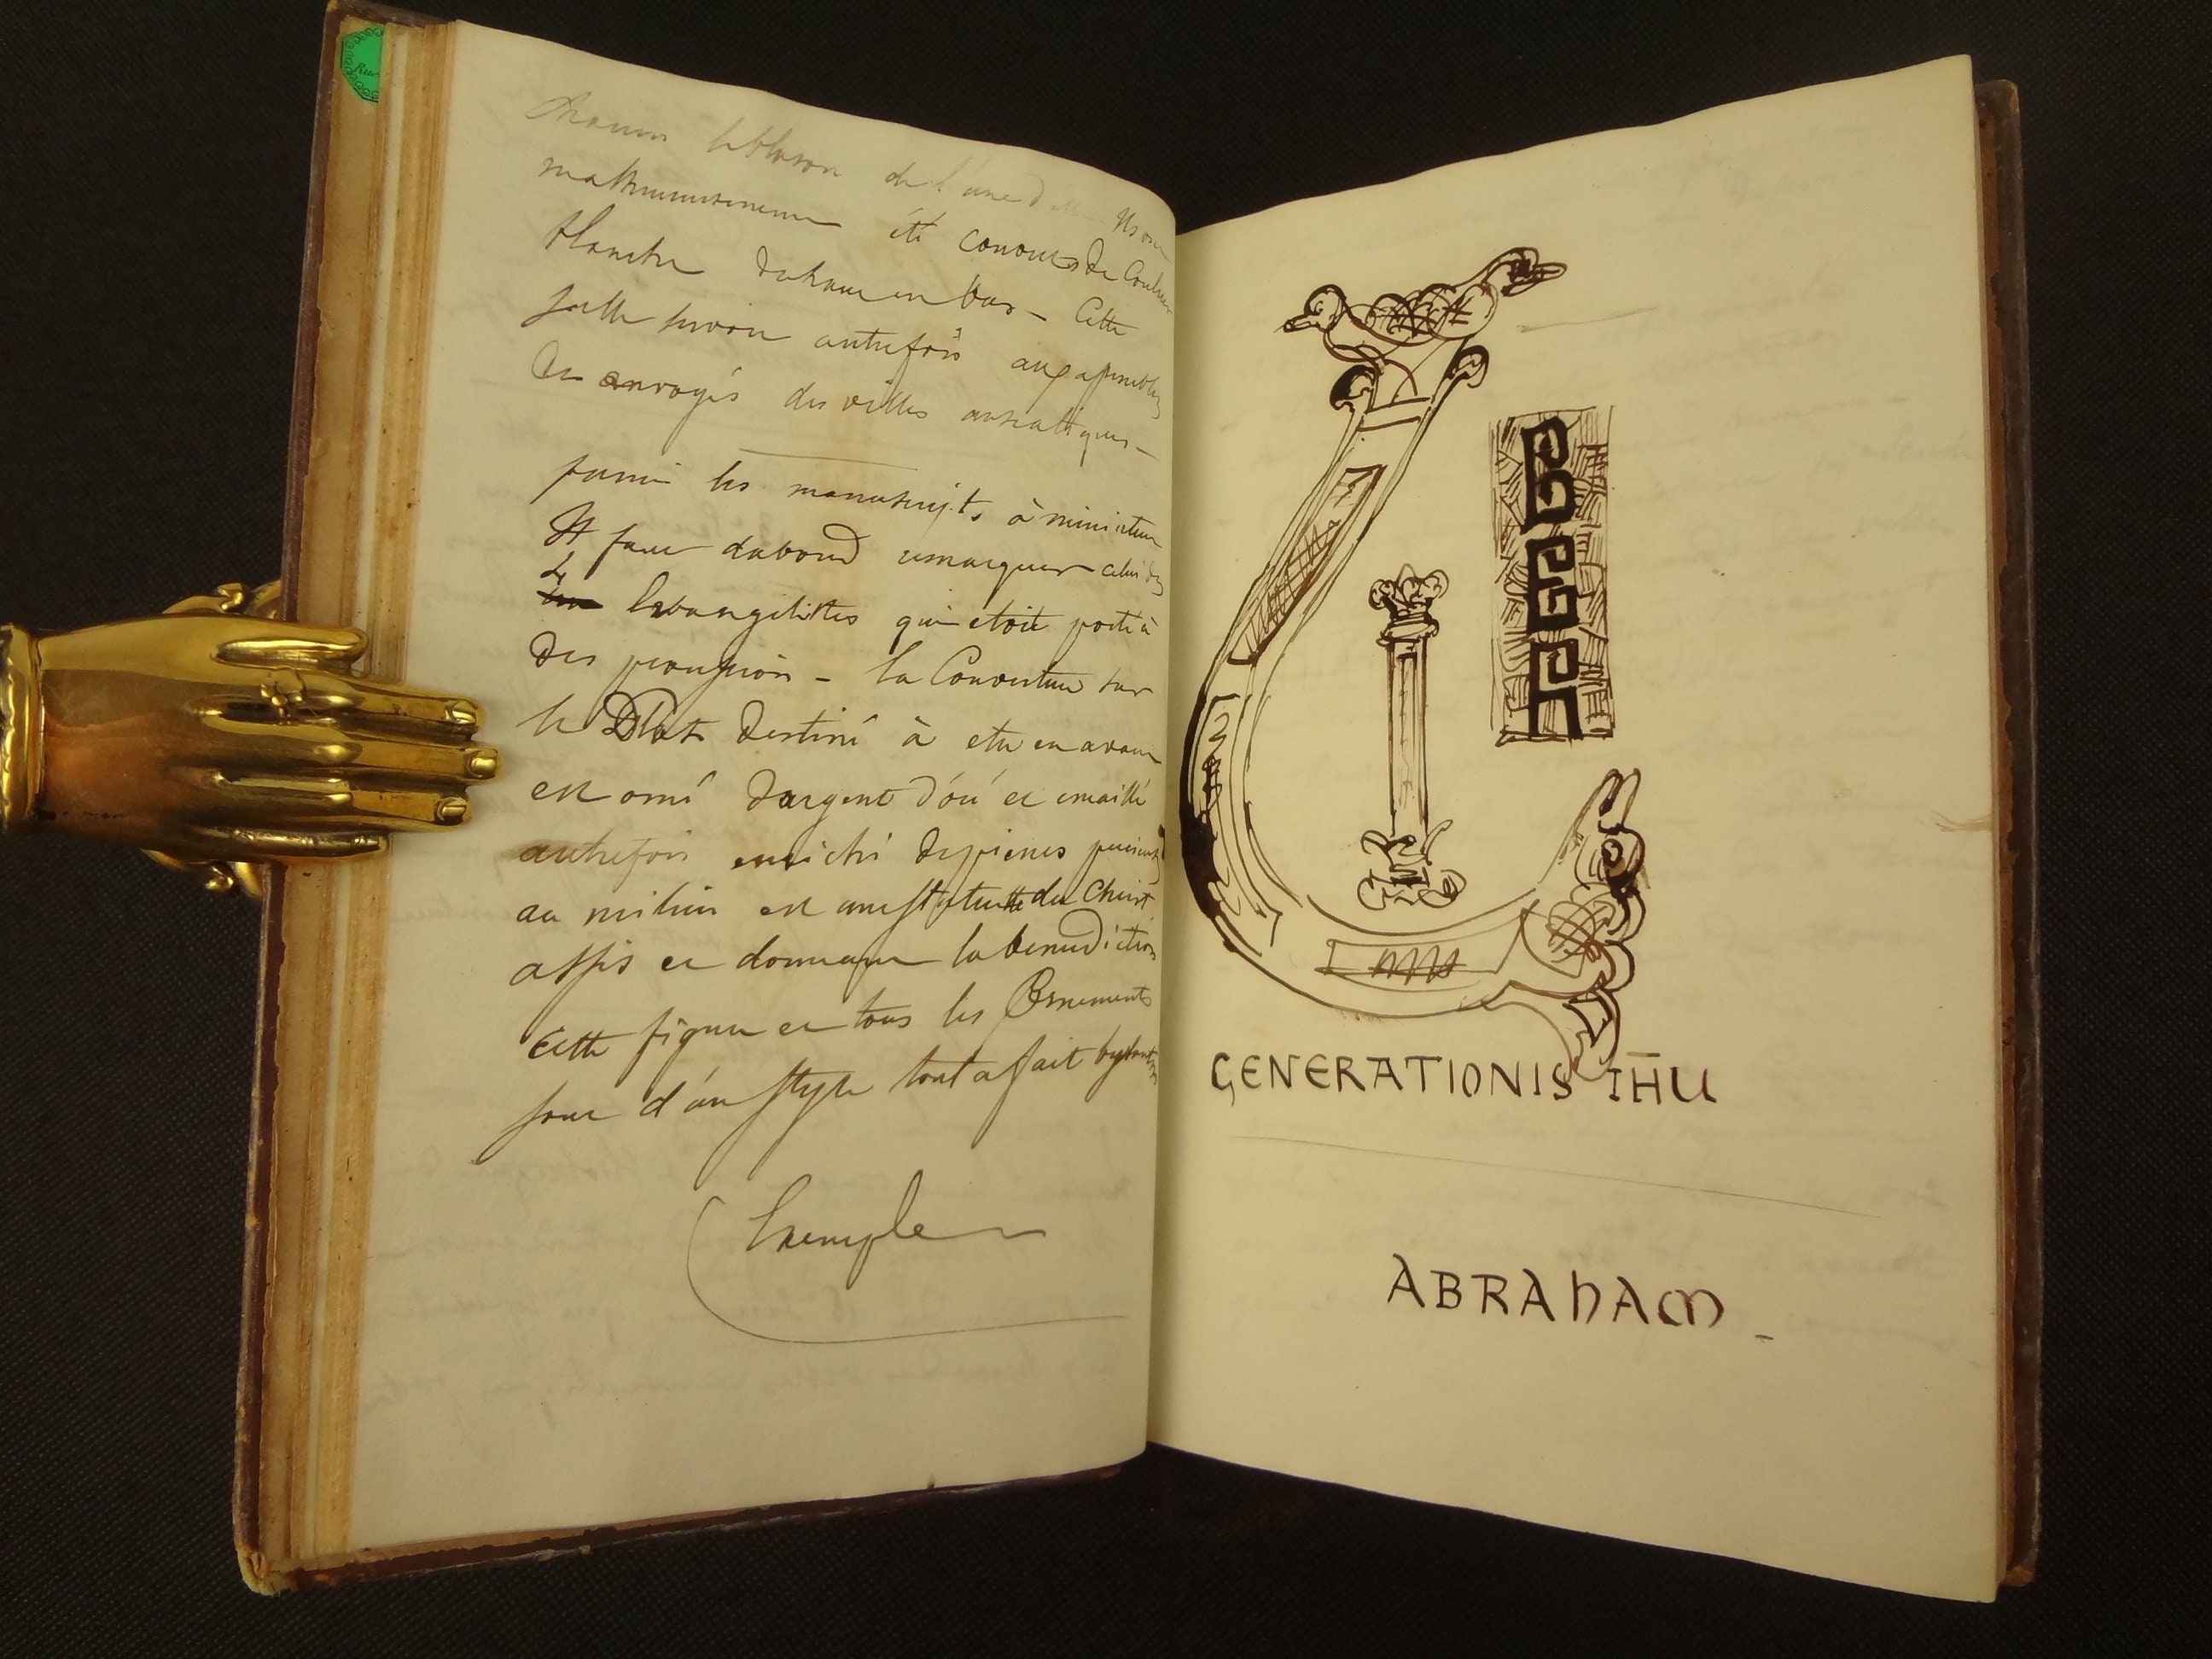 de l'une
été couvers de Couleur
blanche du haut en bas - Cette
salle servoit autrefois aux assemblées
des envoyés des villes anséatiques -
parmi les manuscrits à miniature
Il faut dabord remarquer celui des
4 Evangelistes qui etoit porté à
Des procession - la Couverture sur
le Plat destiné à etre en avant
est orné d'argent doré et emaillé
autrefois enrichi de pierres precieuses
au milieu est une statuette du Christ
assis et donnant la benediction
Cette figure et tous les Ornements
sont d'un style tout a fait byzantin
Exemple
GENERATIONIS IHU
ABRAHAM -